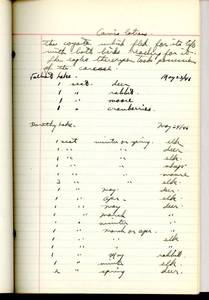 Canis latrans
the coyote which fled for its life
with both birds reaching for it.
The eagles thereupon took possession
of the carcass.
Lake. May 23/45
1 scat. deer
1 " rabbit.
1 " moose
1 " cranberries
Dorothy Lake. May 24/45
1 scat winter or spring. elk
1 " " " " deer.
1 " " " " elk
1 " " " "
1 " " " " moose
3 " " " " elk
1 " May. deer
1 " Apr. elk
1 " May deer.
1 " March "
1 " winter "
1 " March or Apr. "
1 " " elk
1 " " "
1 " May rabbit
1 " winter elk
2 " spring deer.